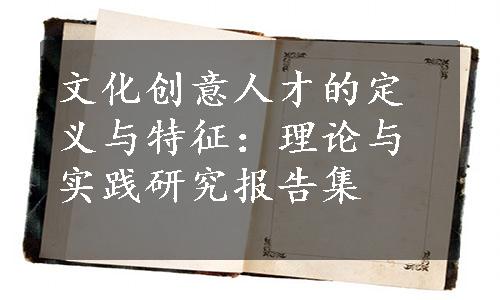 文化创意人才的定
义与特征：理论与
实践研究报告集